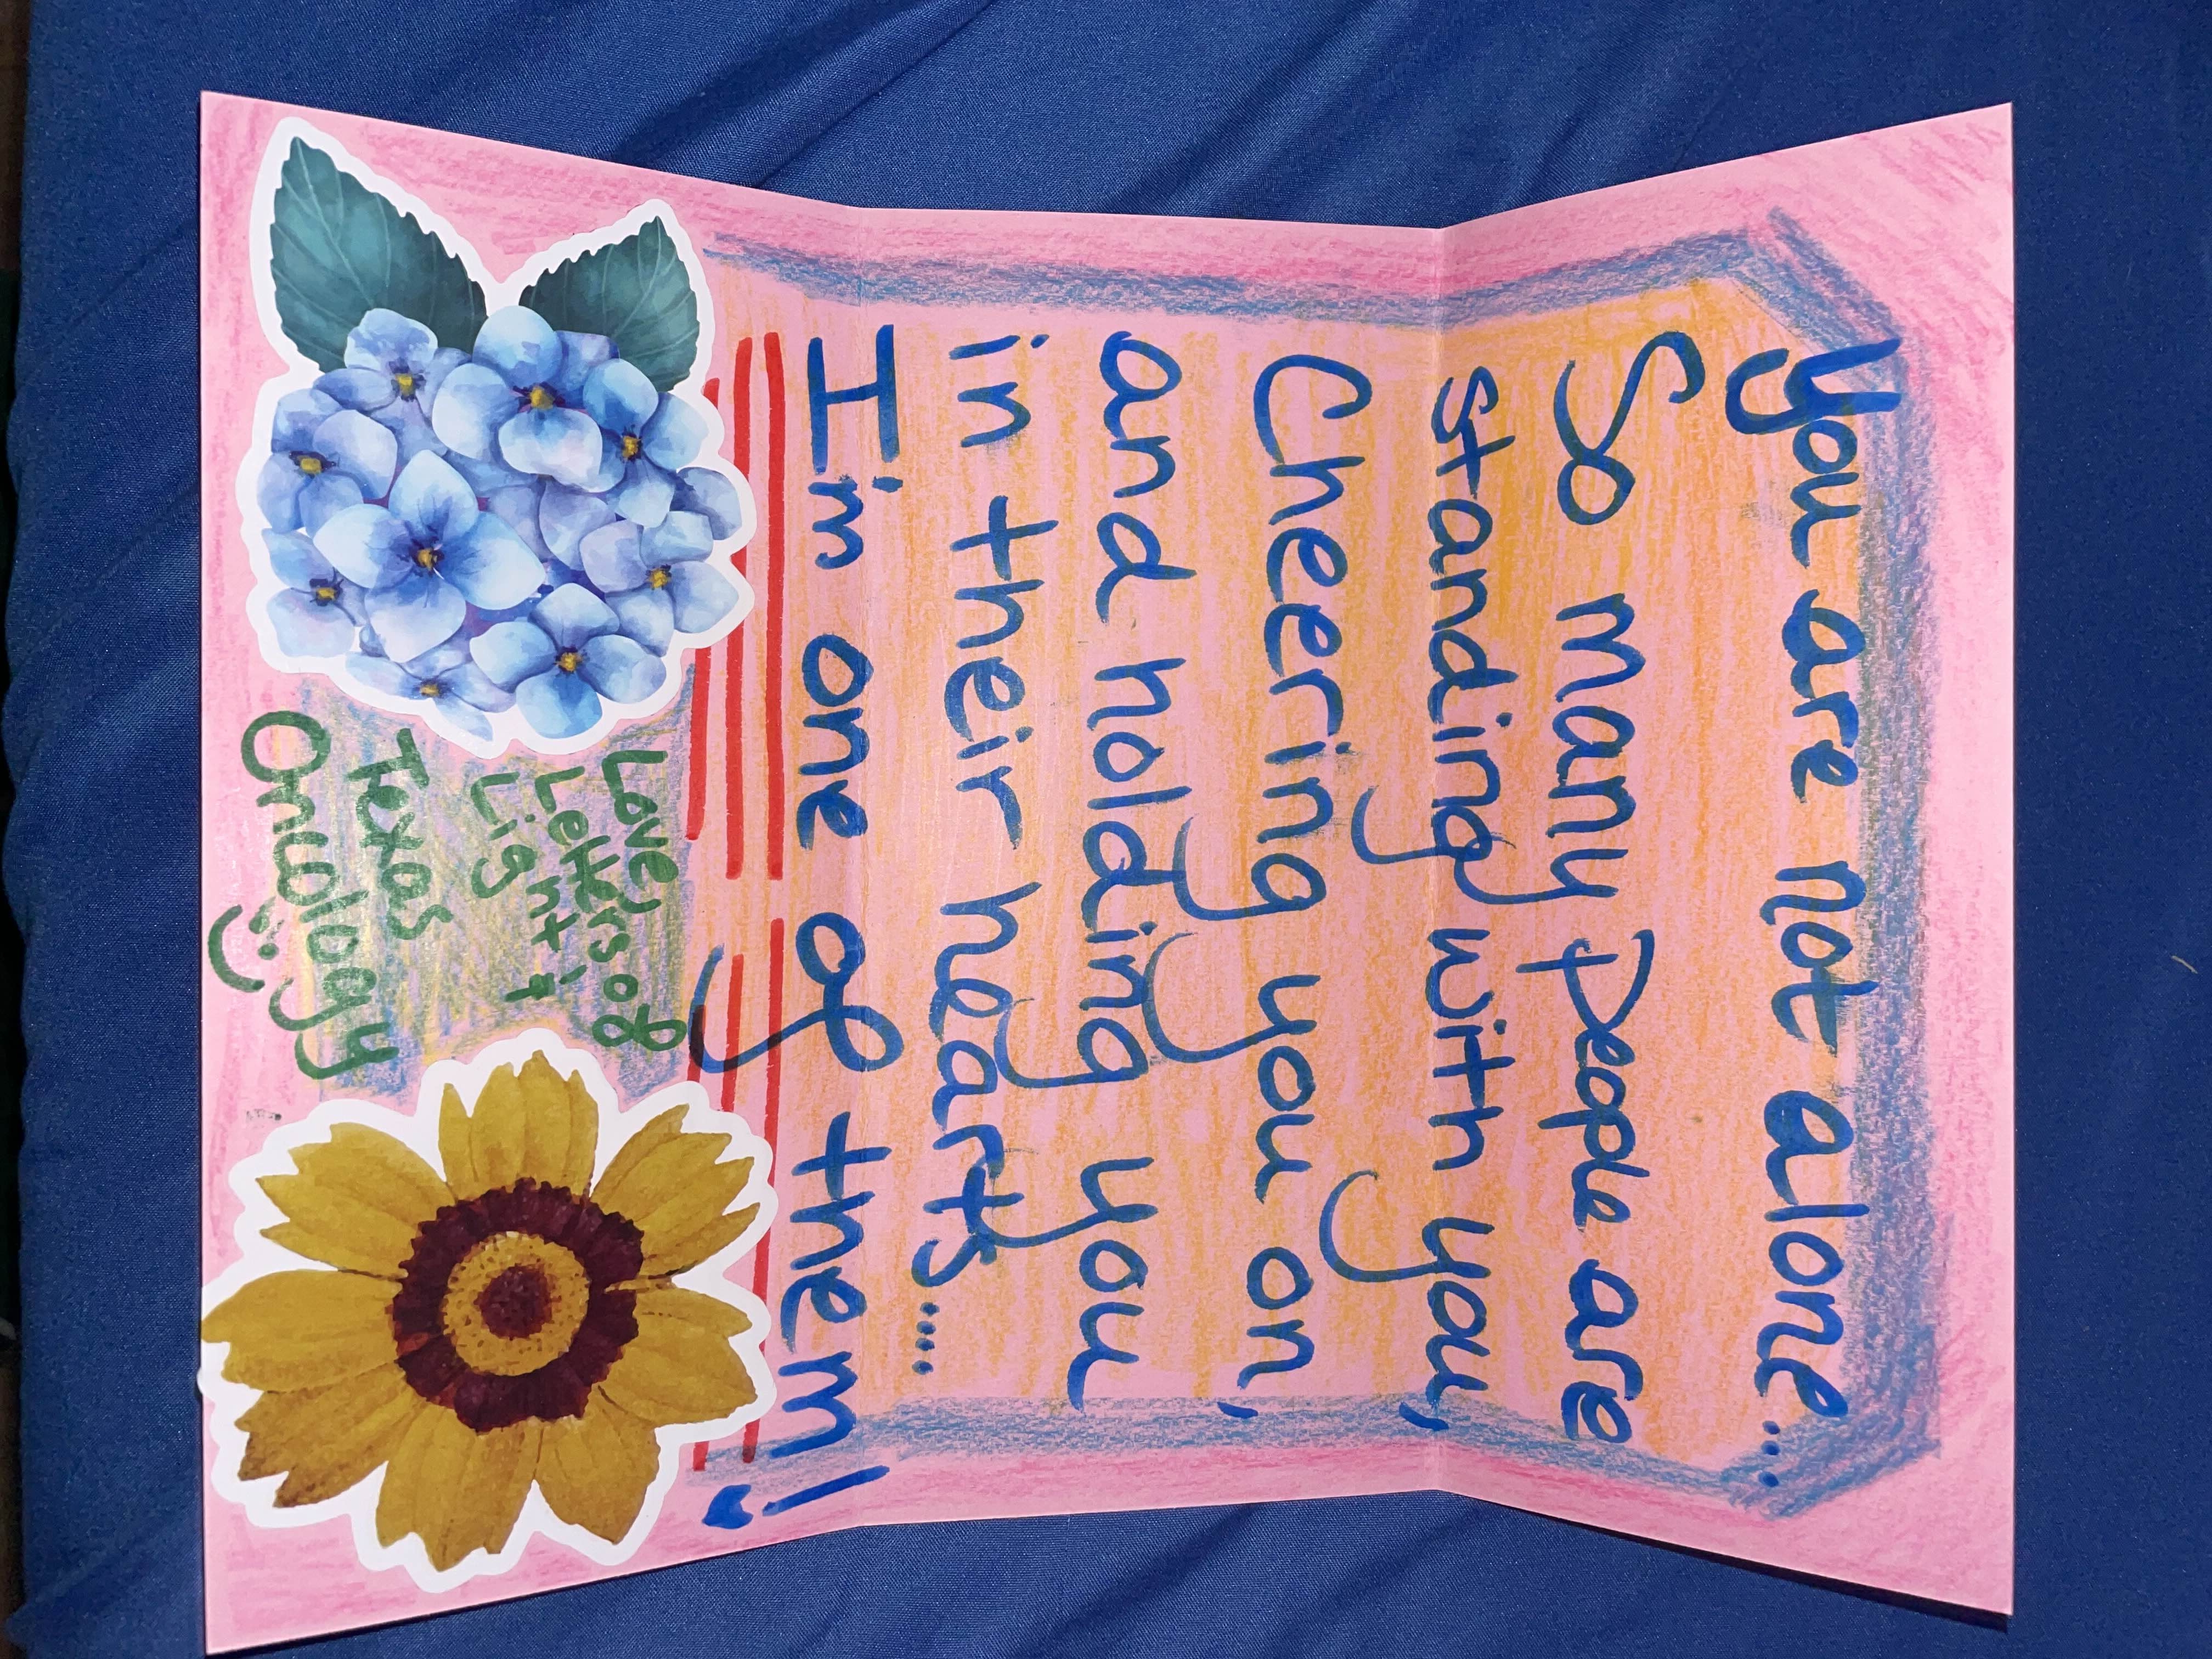 you are not alone....
So many people are
standing with you,
Cheering you on,
and holding you
in their hearts.....
I'm one of them!
Love,
Letters of
Light &
Texas
Onwology